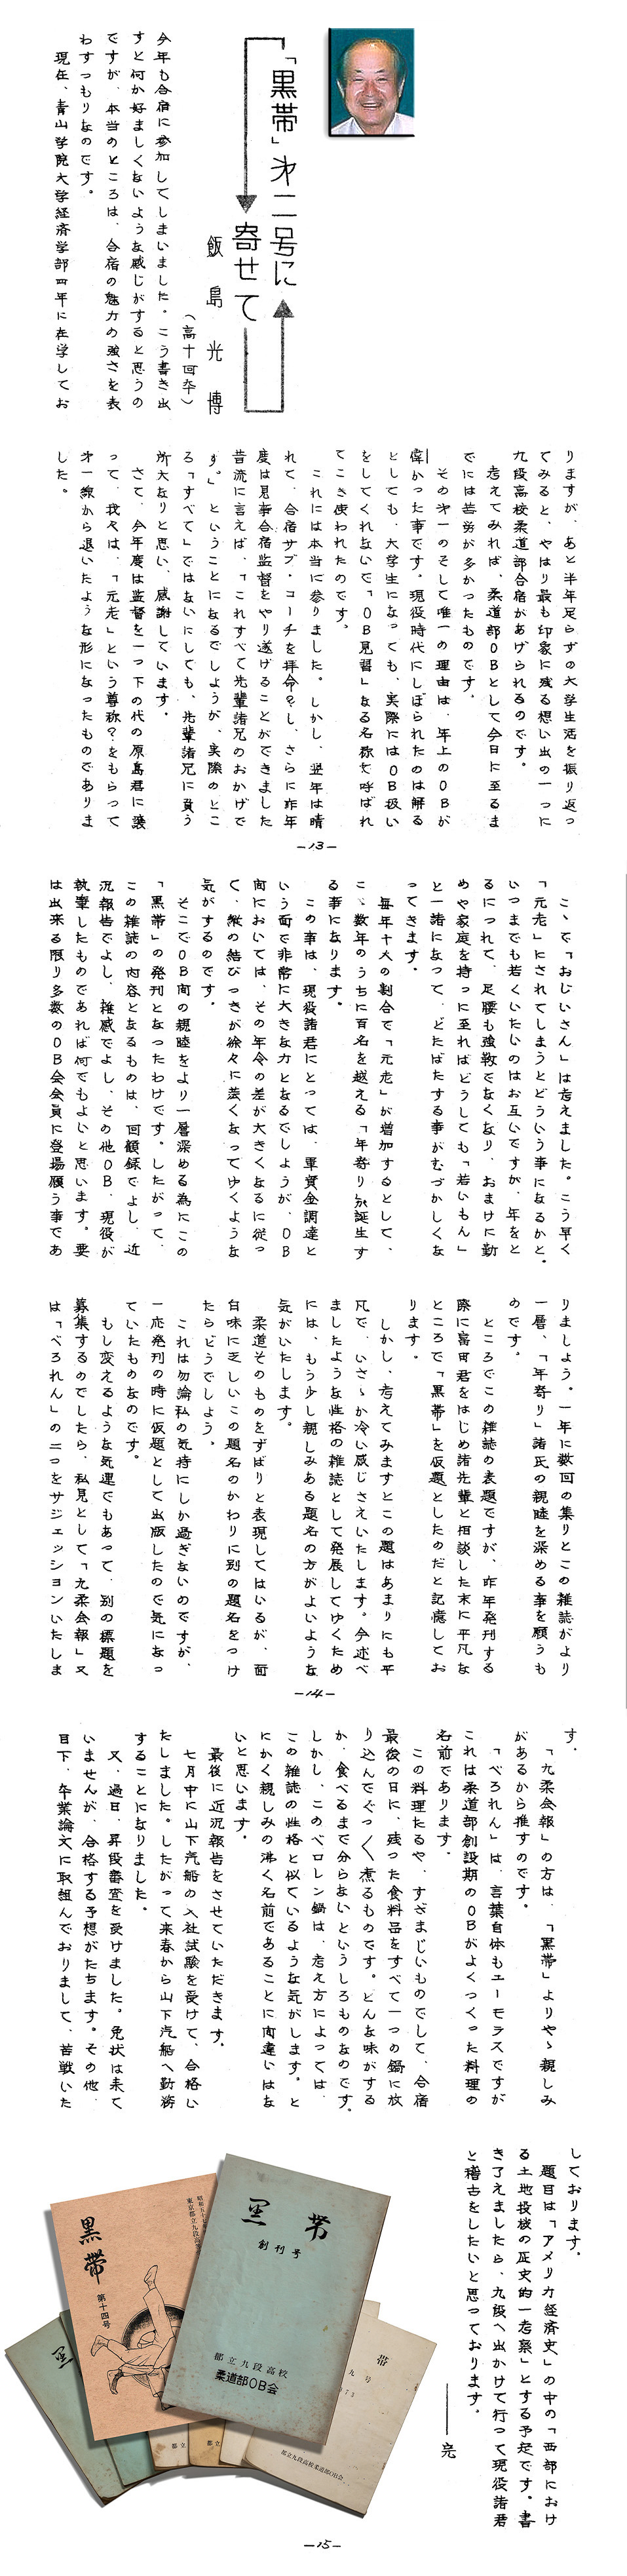 「黒帯」才二号に
寄せて
飯島光博
(高十回卒)
今年も合宿に参加してしまいました。こう書き出
すと何か好ましくないような感じがすると思うの
ですが、本当のところは、合宿の魅力の強さを表
わすつもりなのです。
現在、青山学院大学経済学部四年に在学してお
りますが、あと半年足らずの大学生活を振り返っ
てみると、やはり最も印象に残る想い出の一つに
九段高校柔道部合宿があげられるのです。
考えてみれば、柔道部OBとして今日に至るま
でには苦労が多かったものです。
その才一のそして唯一の理由は、年上のOBが
偉かった事です。現役時代にしぼられたのは解る
としても、大学生になっても、実際にはOB扱い
をしてくれないで「OB見習」なる名称で呼ばれ
てこき使われたのです。
これには本当に参りました。しかし、翌年は晴
れて、合宿サブ・コーチを拝命?し、さらに昨年
度は見事合宿監督をやり遂げることができました
昔流に言えば、「これすべて先輩諸兄のおかげで
す。」ということになるでしょうが、実際のとこ
ろ「すべて」ではないにしても、先輩諸兄に負う
所大なりと思い、感謝しています。
さて、今年度は監督を一つ下の代の原島君に譲
って、我々は、「元老」という尊称?をもらって
才一線から退いたような形になったものでありま
した。
―13―
こゝで「おじいさん」は考えました。こう早く
「元老」にされてしまうとどういう事になるかと。
いつまでも若くいたいのはお互いですが、年をと
るにつれて、足腰も強靱でなくなり、おまけに勤
めや家庭を持つに至ればどうしても「若いもん」
と一諸になって、どたばたする事がむづかしくな
ってきます。
毎年十人の割合で「元老」が増加するとして、
こゝ数年のうちに百名を越える「年寄り」が誕生す
る事になります。
この事は、現役諸君にとっては、軍資金調達と
いう面で非常に大きな力となるでしょうが、OB
間においては、その年令の差が大きくなるに従っ
て、縦の結びつきが徐々に薄くなってゆくような
気がするのです。
そこでOB間の親睦をより一層深める為にこの
「黒帯」の発刊となったわけです。したがって、
この雑誌の内容となるものは、回顧録でよし、近
況報告でよし、雑感でよし、その他OB、現役が
執筆したものであれば何でもよいと思います。要
は出来る限り多数のOB会会員に登場願う事であ
りましょう。一年に数回の集りとこの雑誌がより
一層、「年寄り」諸氏の親睦を深める事を願うも
のです。
ところでこの雑誌の表題ですが、昨年発刊する
際に富田君をはじめ諸先輩と相談した末に平凡な
ところで「黒帯」を仮題としたのだと記憶してお
ります。
しかし、考えてみますとこの題はあまりにも平
凡で、いさゝか冷い感じさえいたします。今述べ
ましたような性格の雑誌として発展してゆくため
には、もう少し親しみある題名の方がよいような
気がいたします。
柔道そのものをずばりと表現してはいるが、面
白味に乏しいこの題名のかわりに別の題名をつけ
たらどうでしょう。
これは勿論私の気持にしか過ぎないのですが、
一応発刊の時に仮題として出版したので気になっ
ていたものなのです。
もし変えるような気運でもあって、別の標題を
募集するのでしたら、私見として「九柔会報」又
は「べろれん」の二つをサジェッションいたしま
―14―
す。
「九柔会報」の方は、「黒帯」よりやゝ親しみ
があるから推すのです。
「べろれん」は、言葉自体もユーモラスですが
これは柔道部創設期のOBがよくつくった料理の
名前であります。
この料理たるや、すさまじいものでして、合宿
最後の日に、残った食料品をすべて一つの鍋に放
り込んでぐつ〱煮るものです。どんな味がする
か、食べるまで分らないというしろものなのです。
しかし、このベロレン鍋は、考え方によっては、
この雑誌の性格と似ているような気がします。と
にかく親しみの沸く名前であることに間違いはな
いと思います。
最後に近況報告をさせていただきます。
七月中に山下汽船の入社試験を受けて、合格い
たしました。したがって来春から山下汽船へ勤務
することになりました。
又、過日、昇段審査を受けました。免状は来て
いませんが、合格する予想がたちます。その他、
目下、卒業論文に取組んでおりまして、苦戦いた
しております。
題目は「アメリカ経済史」の中の「西部におけ
る土地投機の歴史的一考察」とする予定です。書
き了えましたら、九段へ出かけて行って現役諸君
と稽古をしたいと思っております。
――完
黒帯
創刊号
都立九段高校
柔道部OB会
黒帯
第十四号
帯
九号
都立九段高校柔道部OB会
―15―